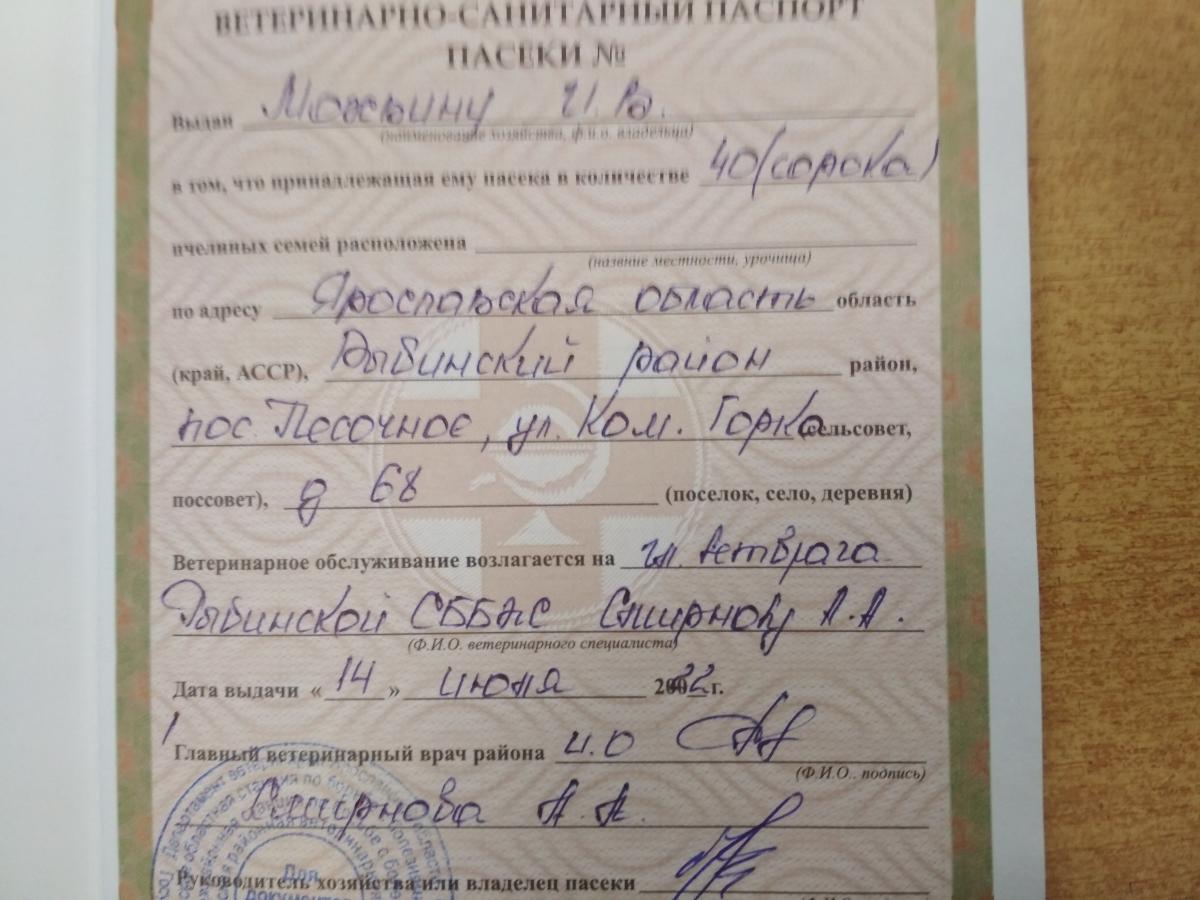 ВЕТЕРИНАРНО-САНИТАРНЫЙ ПАСПОРТ
ПАСЕКИ №
Выдан И.В.
(наименование хозяйства, ф.и.о. владельца)
в том, что принадлежащая ему пасека в количестве 40 (сорока)
пчелиных семей расположена
(название местности, урочища)
по адресу Ярославская область область
(край, АССР), Рыбинский район район,
пос. Песочное, ул. Ком. Горка сельсовет,
поссовет), д 68 (поселок, село, деревня)
Ветеринарное обслуживание возлагается на гл. ветврача
Рыбинской СББЖ Смирнову А.А.
(Ф.И.О. ветеринарного специалиста)
Дата выдачи «14» июня 2022 г.
Главный ветеринарный врач района и.о
(Ф.И.О., подпись)
Смирнова А.А.
Руководитель хозяйства или владелец пасеки
Для
документов